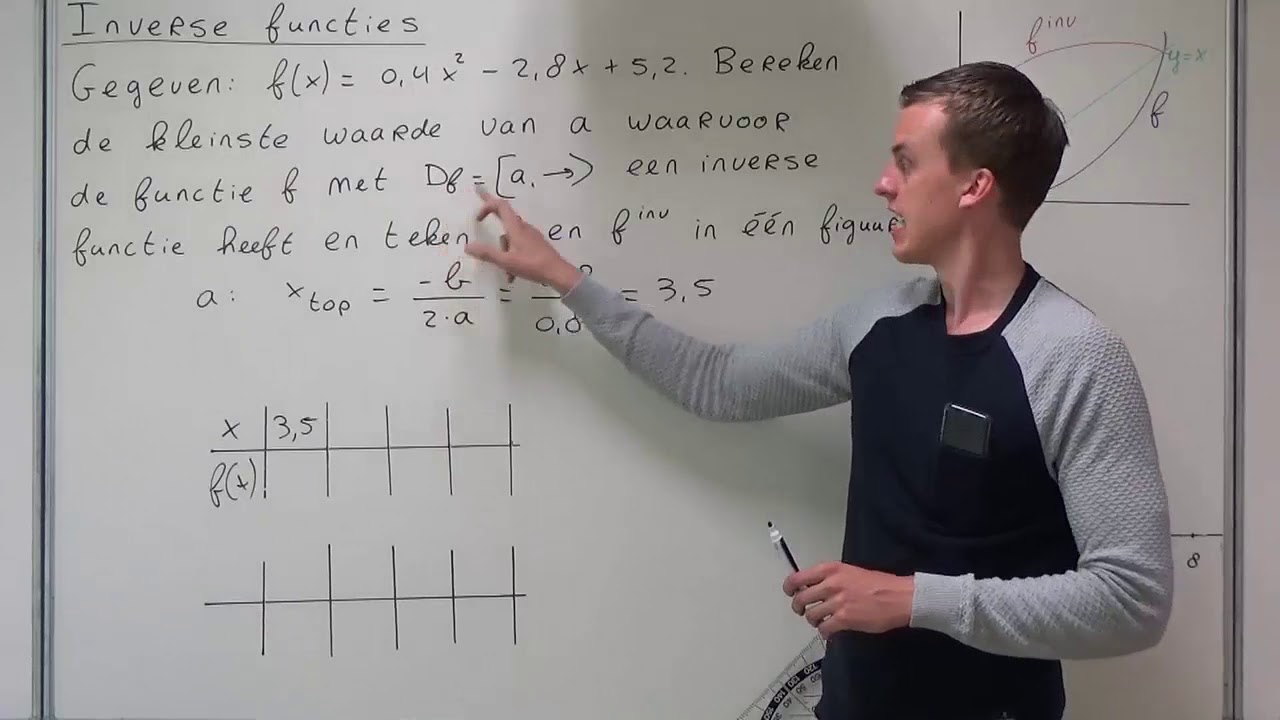 Inverse functies
Gegeven: f(x) = 0,4x² - 2,8x + 5,2. Bereken
de kleinste waarde van a waarvoor
de functie f met Df = [a, →⟩ een inverse
functie heeft en teken en f^inv in één figuur
a: x_top = -b / 2·a = / 0,8 = 3,5
x 3,5
f(x)
f^inv
y=x
f
8